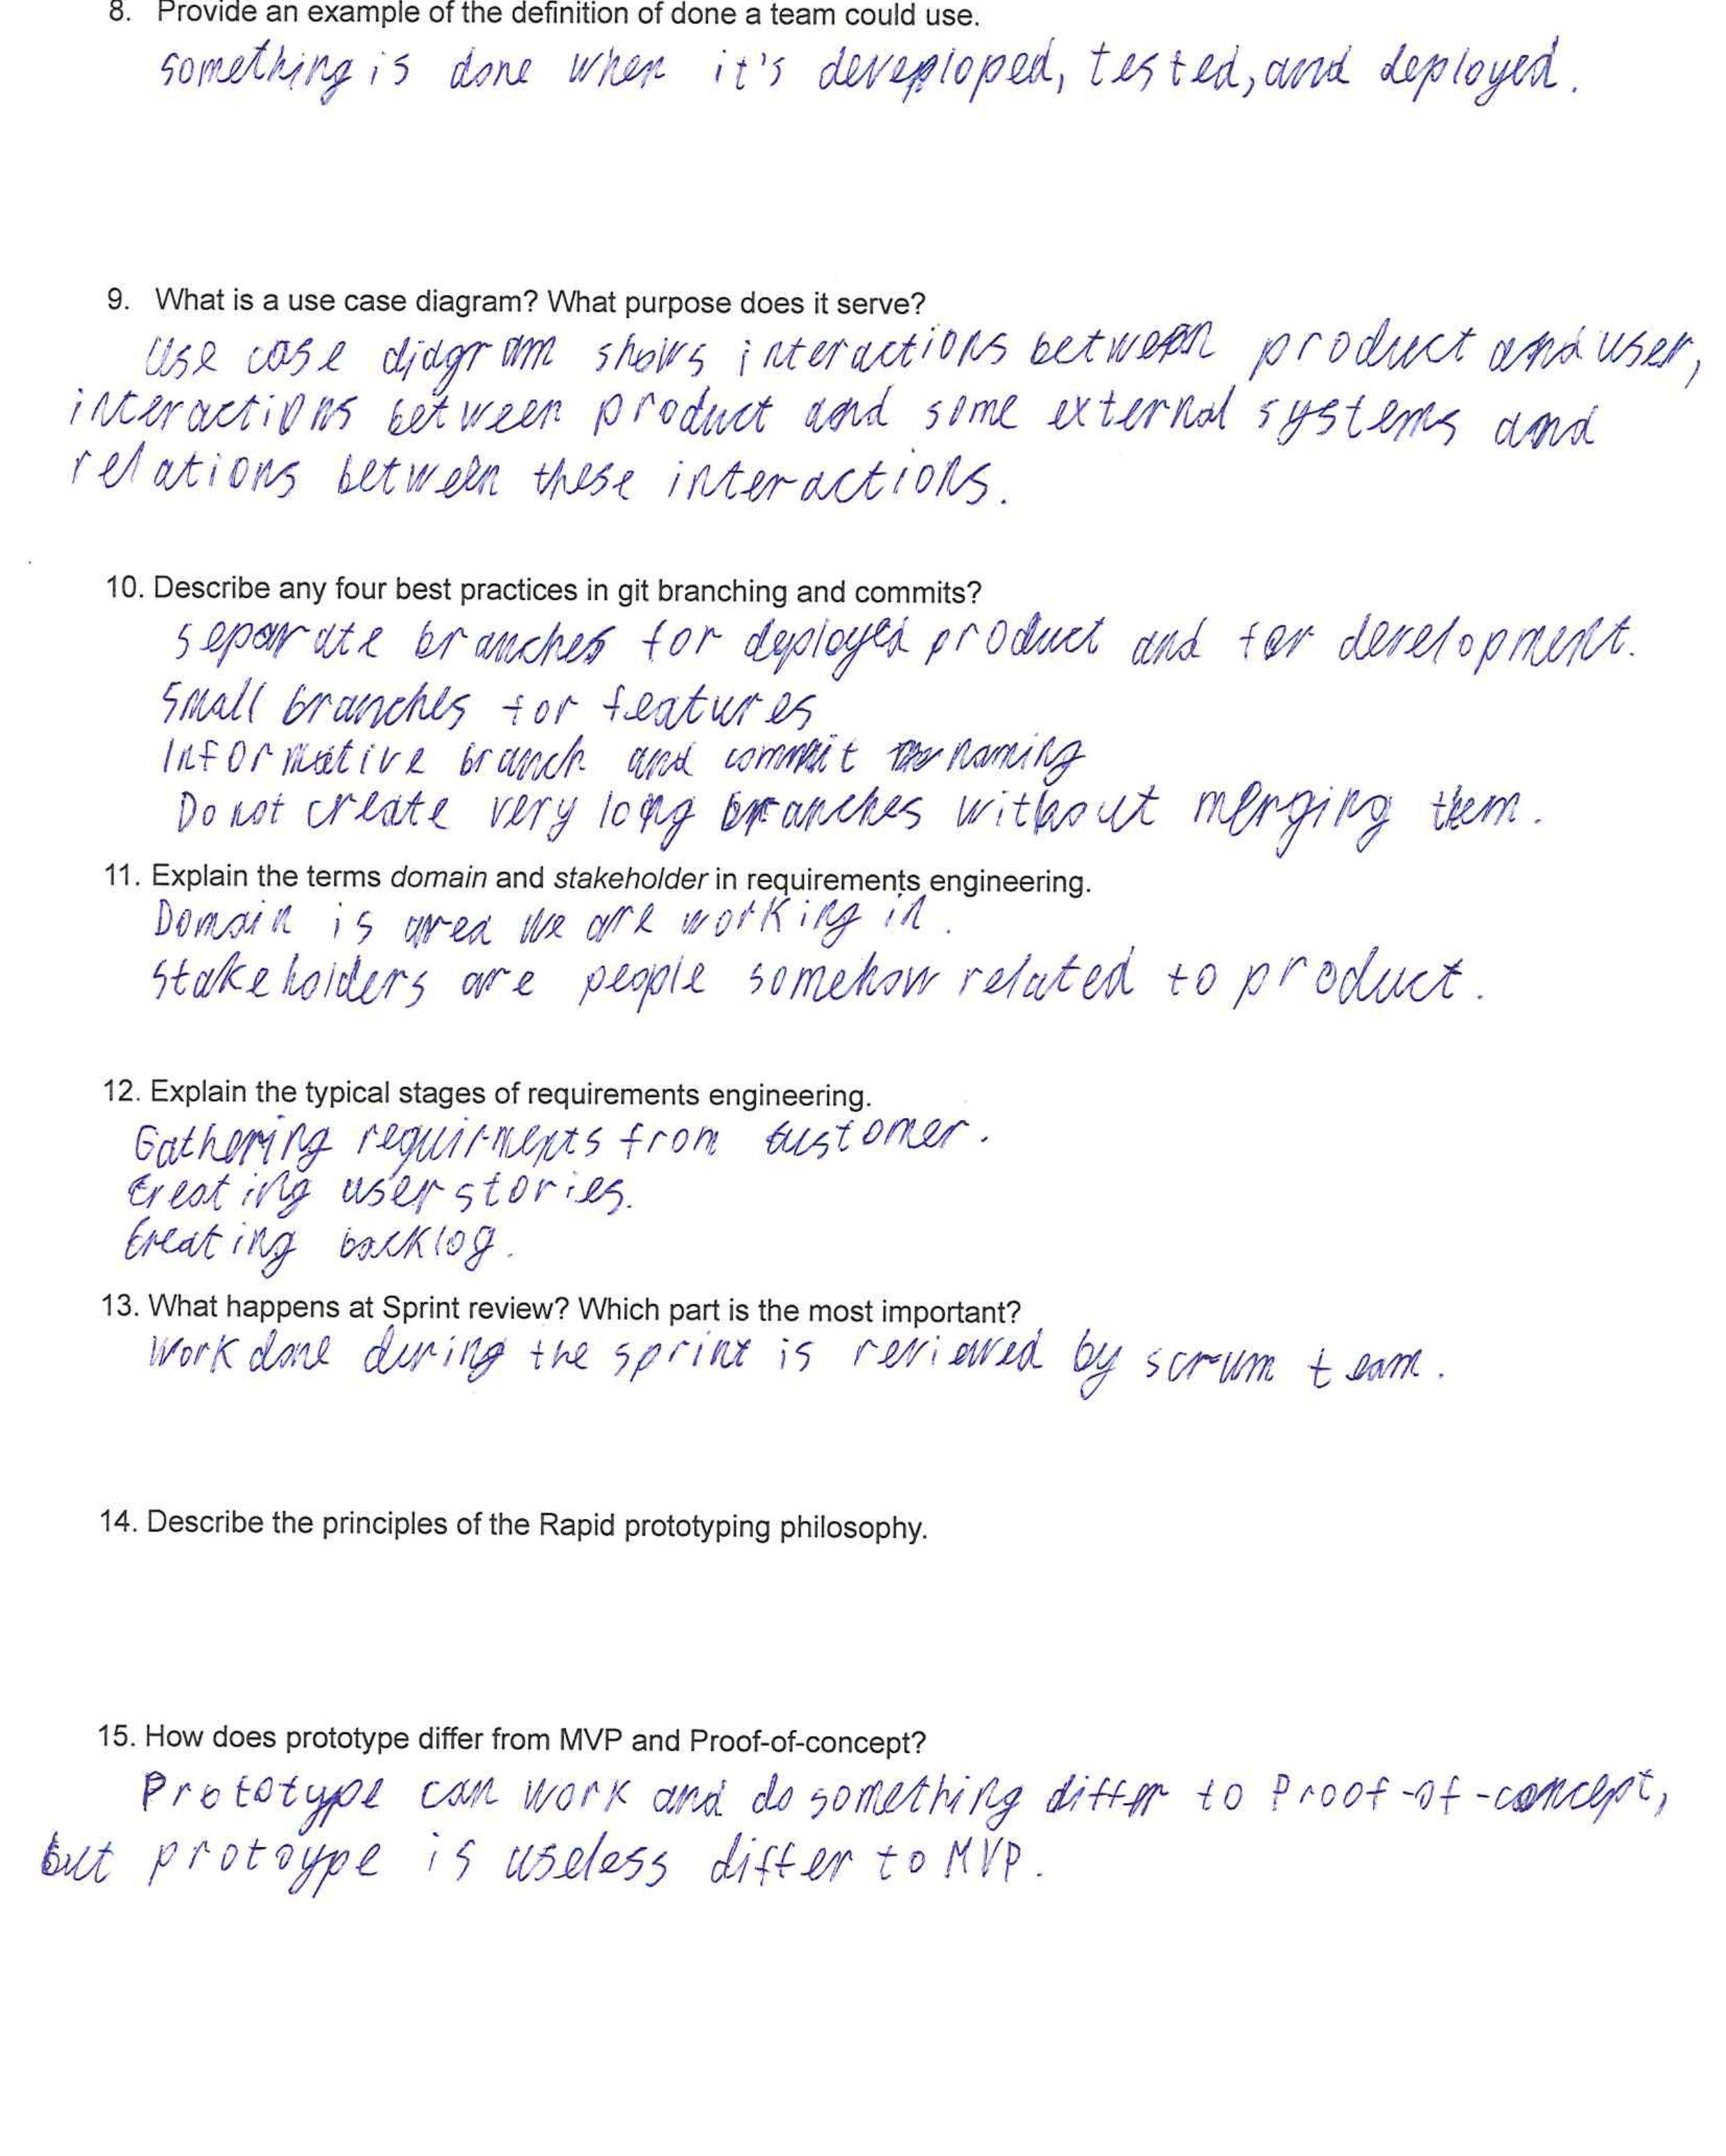 8. Provide an example of the definition of done a team could use.
something is done when it's deveploped, tested, and deployed.
9. What is a use case diagram? What purpose does it serve?
Use case diagram shows interactions between product and user,
interactions between product and some external systems and
relations between these interactions.
10. Describe any four best practices in git branching and commits?
Separate branches for deployed product and for development.
Small branches for features
Informative branch and commit naming
Do not create very long branches without merging them.
11. Explain the terms domain and stakeholder in requirements engineering.
Domain is area we are working in.
Stakeholders are people somehow related to product.
12. Explain the typical stages of requirements engineering.
Gathering requirments from customer.
Creating user stories.
Creating backlog.
13. What happens at Sprint review? Which part is the most important?
Work done during the sprint is reviewed by scrum team.
14. Describe the principles of the Rapid prototyping philosophy.
15. How does prototype differ from MVP and Proof-of-concept?
Prototype can work and do something differ to Proof-of-concept,
but protoype is useless differ to MVP.